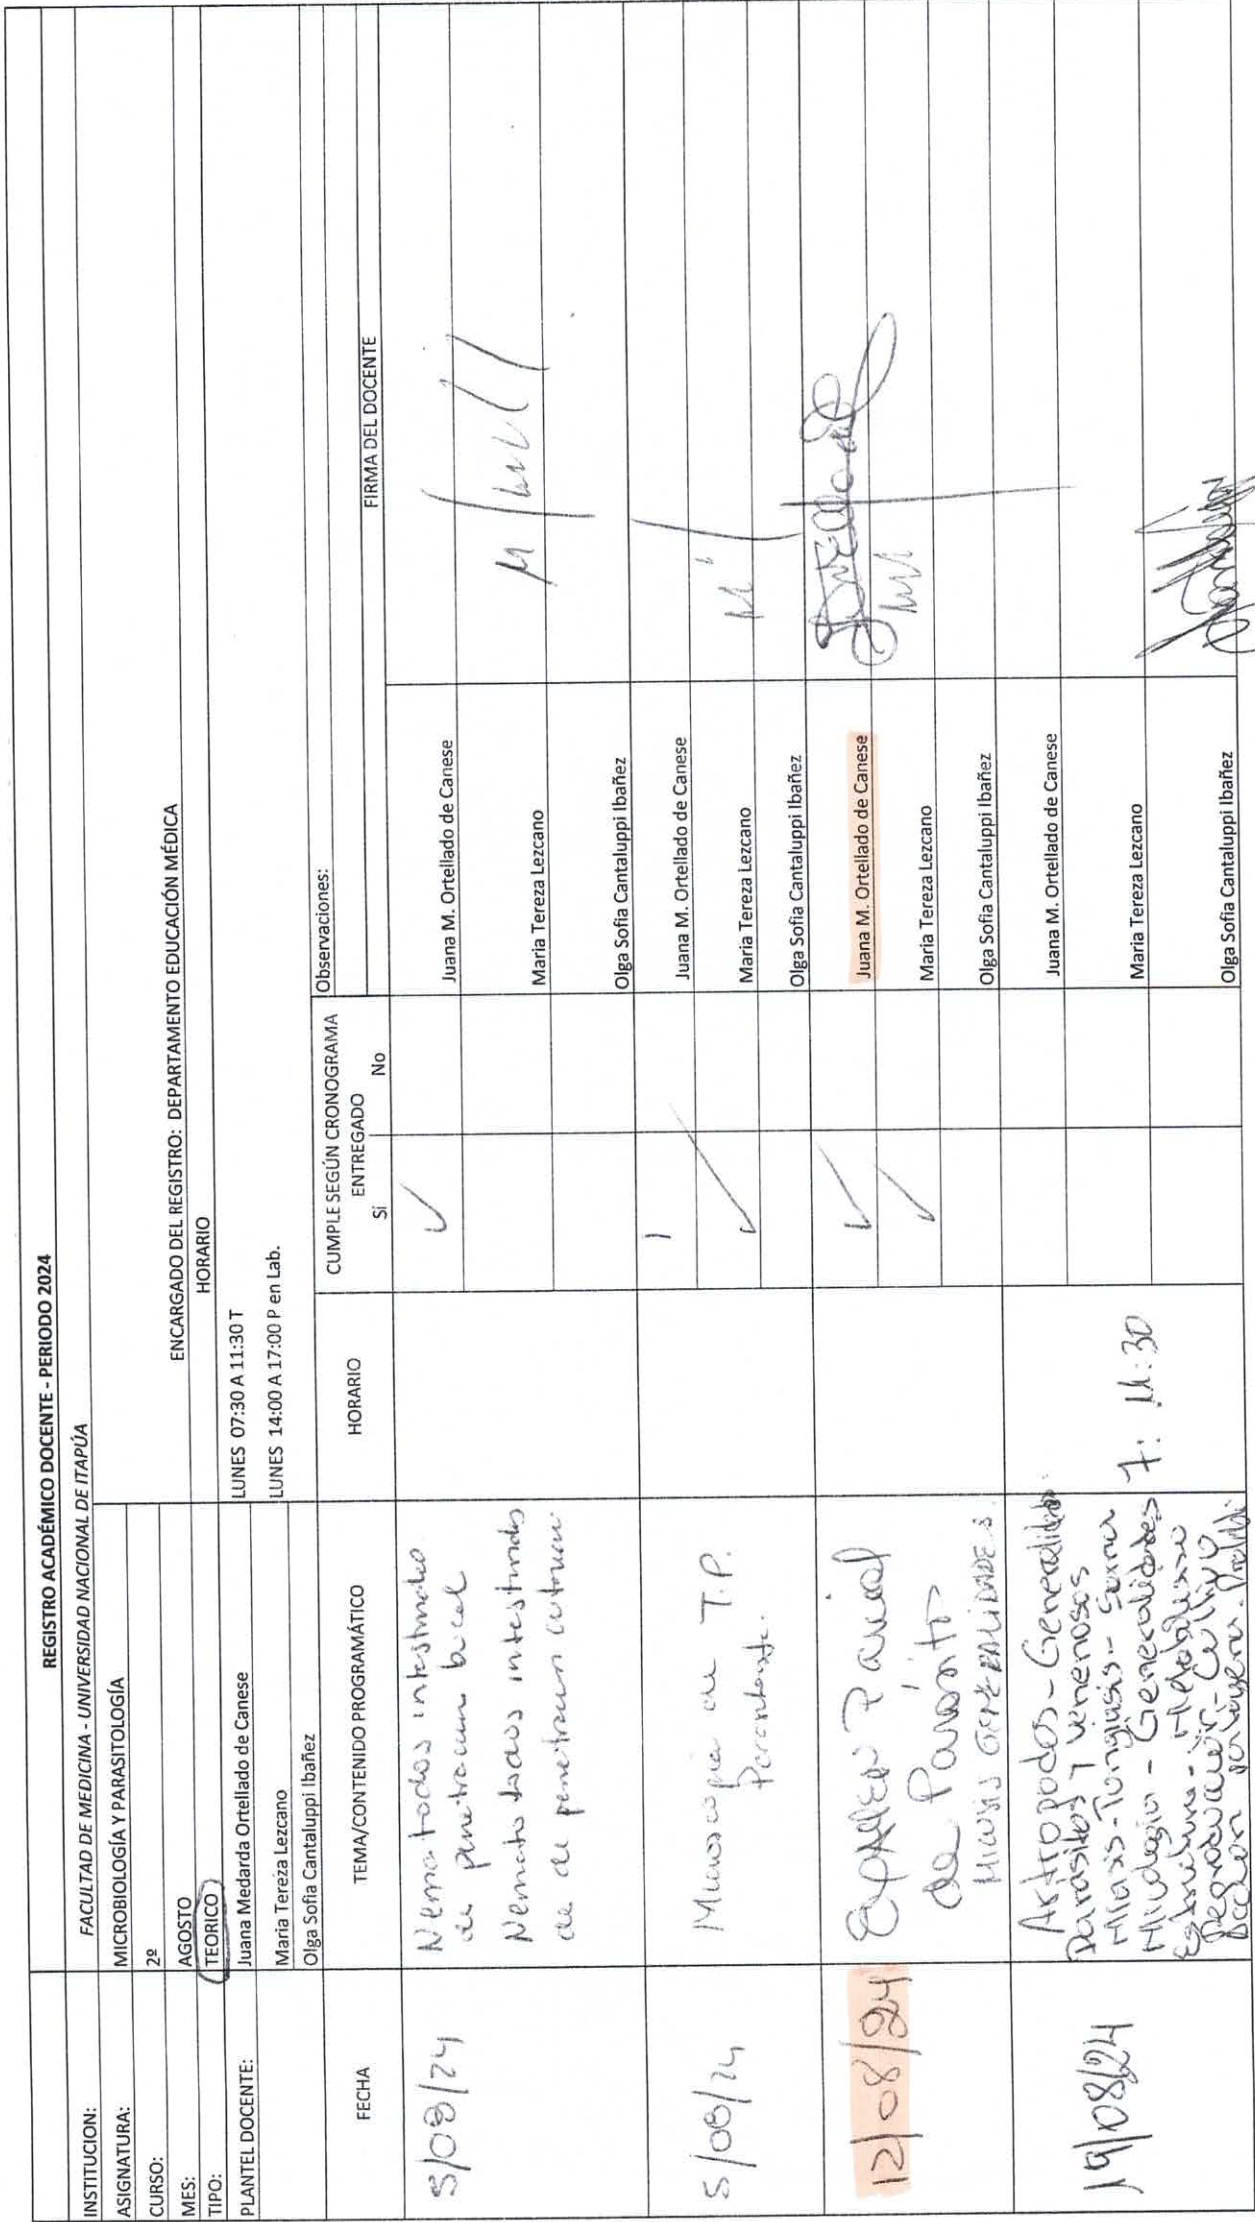 REGISTRO ACADÉMICO DOCENTE - PERIODO 2024
INSTITUCION: FACULTAD DE MEDICINA - UNIVERSIDAD NACIONAL DE ITAPÚA
ASIGNATURA: MICROBIOLOGÍA Y PARASITOLOGÍA
CURSO: 2º
ENCARGADO DEL REGISTRO: DEPARTAMENTO EDUCACIÓN MÉDICA
MES: AGOSTO
TIPO: TEORICO
HORARIO
PLANTEL DOCENTE: Juana Medarda Ortellado de Canese
LUNES 07:30 A 11:30 T
Maria Tereza Lezcano
LUNES 14:00 A 17:00 P en Lab.
Olga Sofia Cantaluppi Ibañez
FECHA
TEMA/CONTENIDO PROGRAMÁTICO
HORARIO
CUMPLE SEGÚN CRONOGRAMA
ENTREGADO
Sí
No
Observaciones:
FIRMA DEL DOCENTE
5/08/24
Nematodos intestinales
de penetracion bucal
Nematodos intestinales
de de penetracion cutanea
Juana M. Ortellado de Canese
Maria Tereza Lezcano
Olga Sofia Cantaluppi Ibañez
5/08/24
Microscopia de T.P.
Juana M. Ortellado de Canese
Maria Tereza Lezcano
Olga Sofia Cantaluppi Ibañez
12/08/24
Examen Parcial
de Parásito
Micosis GENERALIDADES
Juana M. Ortellado de Canese
Maria Tereza Lezcano
Olga Sofia Cantaluppi Ibañez
19/08/24
Artropodos - Generalidades
Parasitos y venenosos
Miasis - Tungiasis - Sarna
Micologia - Generalidades
Estructura - Metabolismo
Cultivo
Accion
7: 11:30
Juana M. Ortellado de Canese
Maria Tereza Lezcano
Olga Sofia Cantaluppi Ibañez